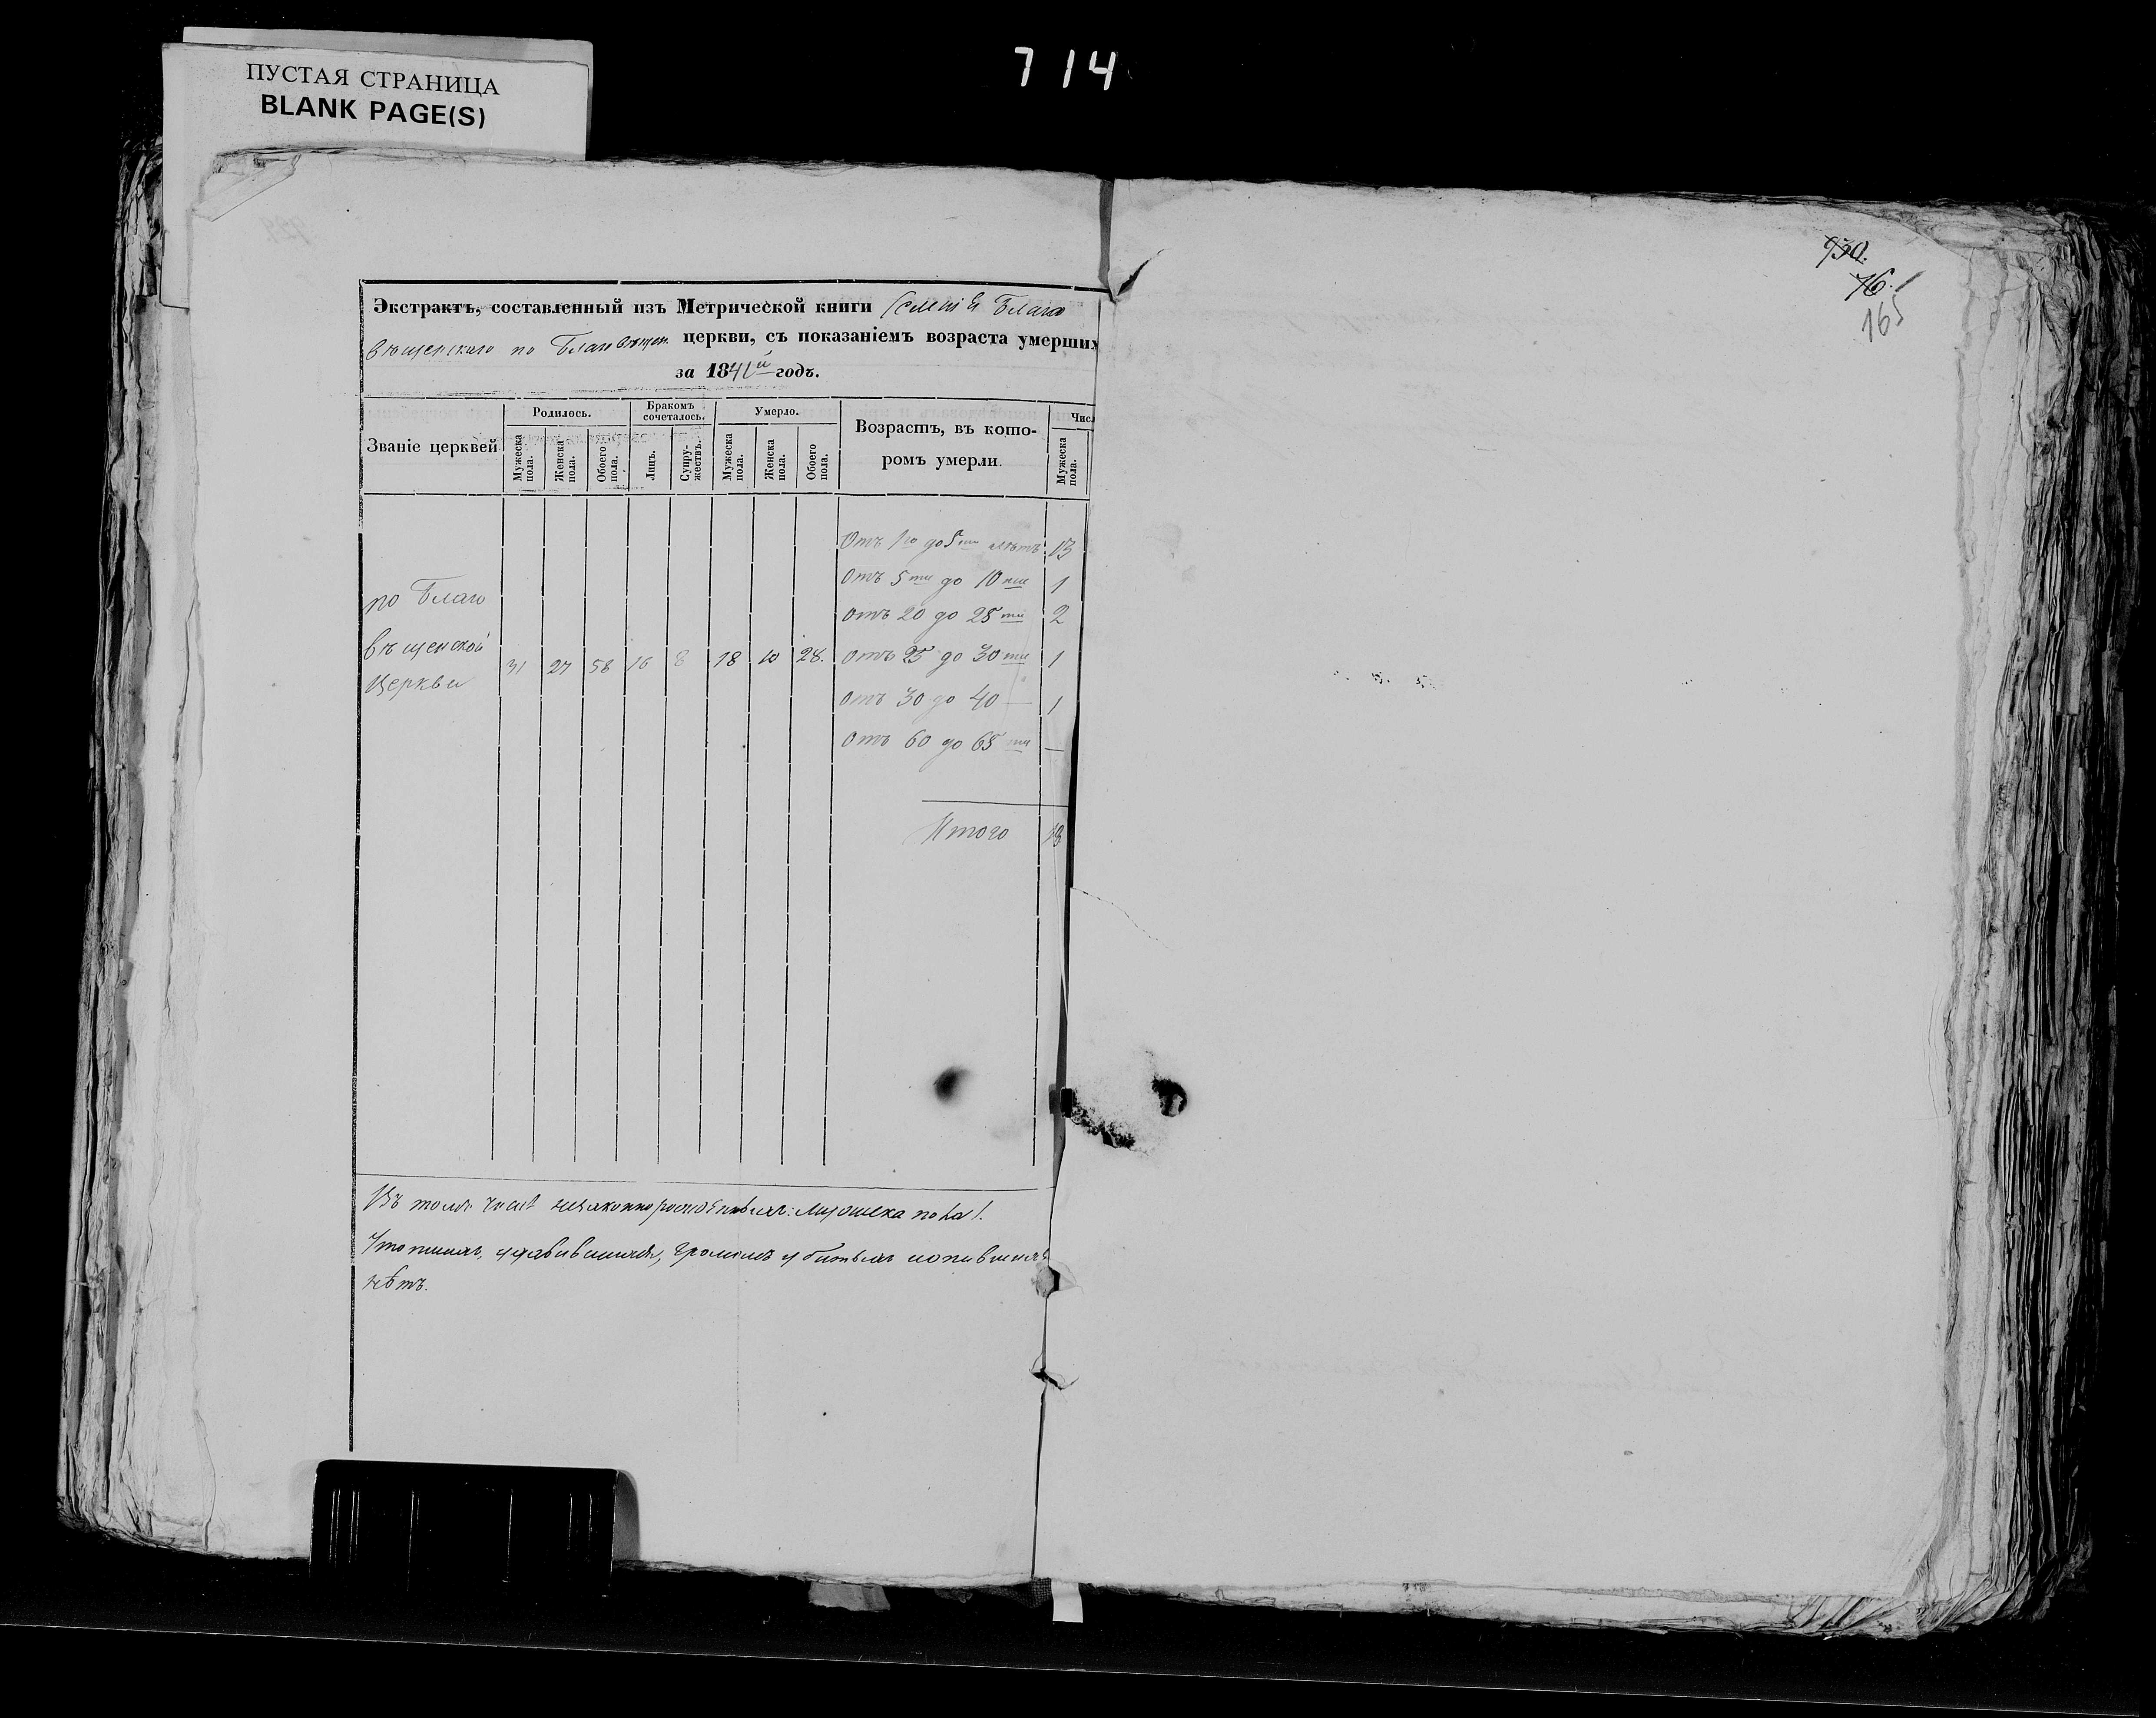 ПУСТАЯ СТРАНИЦА
BLANK PAGE(S)
714
930.
76.
165
Экстрактъ, составленный изъ Метрической книги Селенія Благо
вѣщенскаго по Благовѣщен. церкви, съ показаніемъ возраста умерших
за 1841й годъ.
Званіе церквей
Родилось.
Мужеска пола.
Женска пола.
Обоего пола.
Бракомъ сочеталось.
Лицъ.
Супружествъ.
Умерло.
Мужеска пола.
Женска пола.
Обоего пола.
Возрастъ, въ которомъ умерли.
Числ
Мужеска пола.
по Благо
вѣщенской
Церкви
31 27 58 16 8 18 10 28.
Отъ 1го до 5ти лѣтъ. 13
Отъ 5ти до 10ти 1
Отъ 20 до 25ти 2
Отъ 25 до 30ти 1
Отъ 30 до 40 — 1
Отъ 60 до 65ти —
Итого 18
Въ томъ числѣ незаконнорожденныхъ: мужеска пола 1.
нѣтъ.